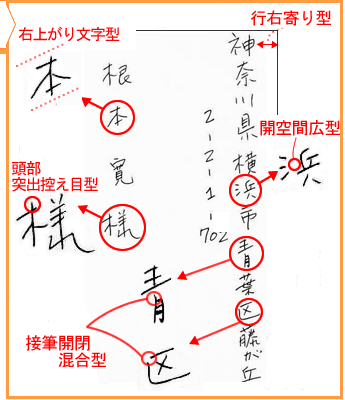 行右寄り型
右上がり文字型
本
神奈川県横浜市青葉区藤が丘
2-2-1-702
根本寛様
開空間広型
浜
頭部
突出控え目型
様
青
区
接筆開閉
混合型